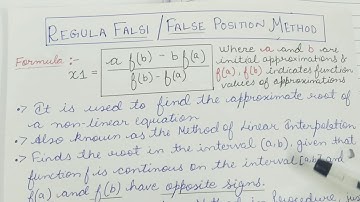 REGULA FALSI / FALSE POSITION METHOD
Formula :- x1 = a f(b) - b f(a) / f(b) - f(a)
where a and b are
initial approximations &
f(a), f(b) indicates function
values of approximations
•> It is used to find the approximate root of
a non-linear equation
•> Also known as the Method of Linear Interpolation
•> Finds the root in the interval (a,b), given that
function f is continous on the interval [a,b] and
f(a) and f(b) have opposite signs.